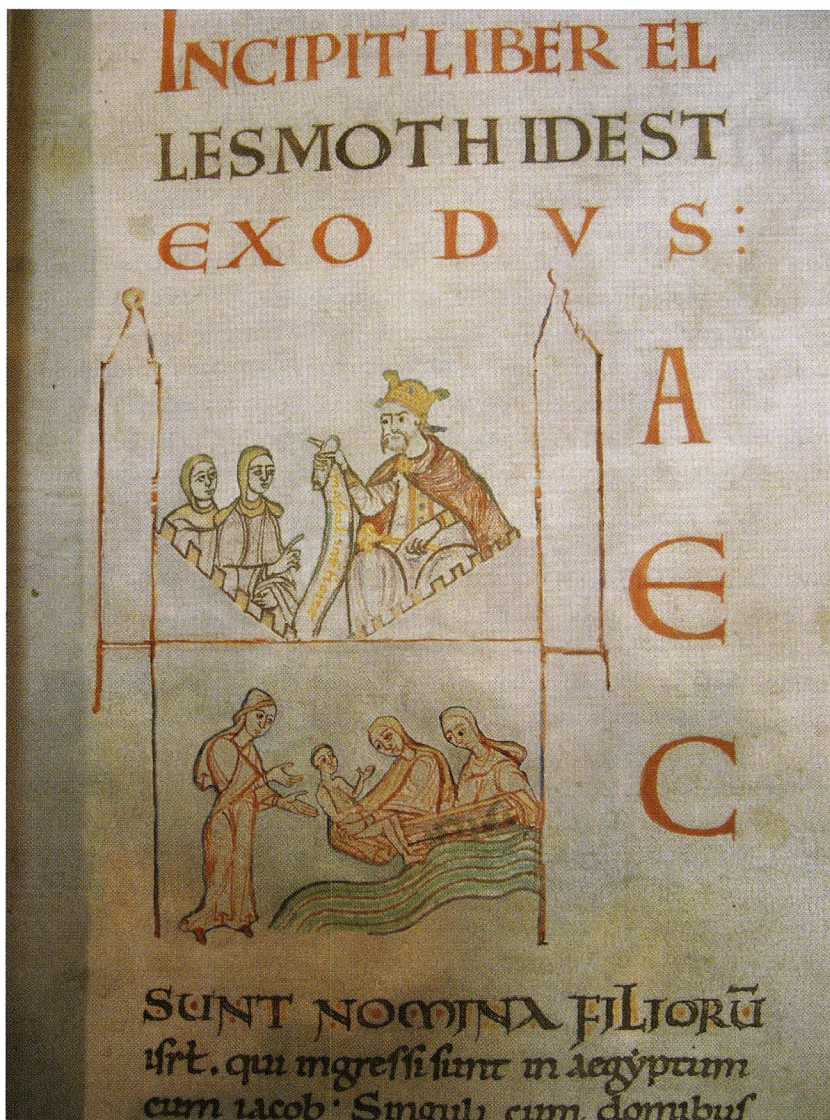 INCIPIT LIBER EL
LESMOTH IDEST
EXODVS:
H
A
E
C
SUNT NOMINA FILIORŪ
isrł. qui ingressi sunt in aegyptum
cum iacob· Singuli cum domibus